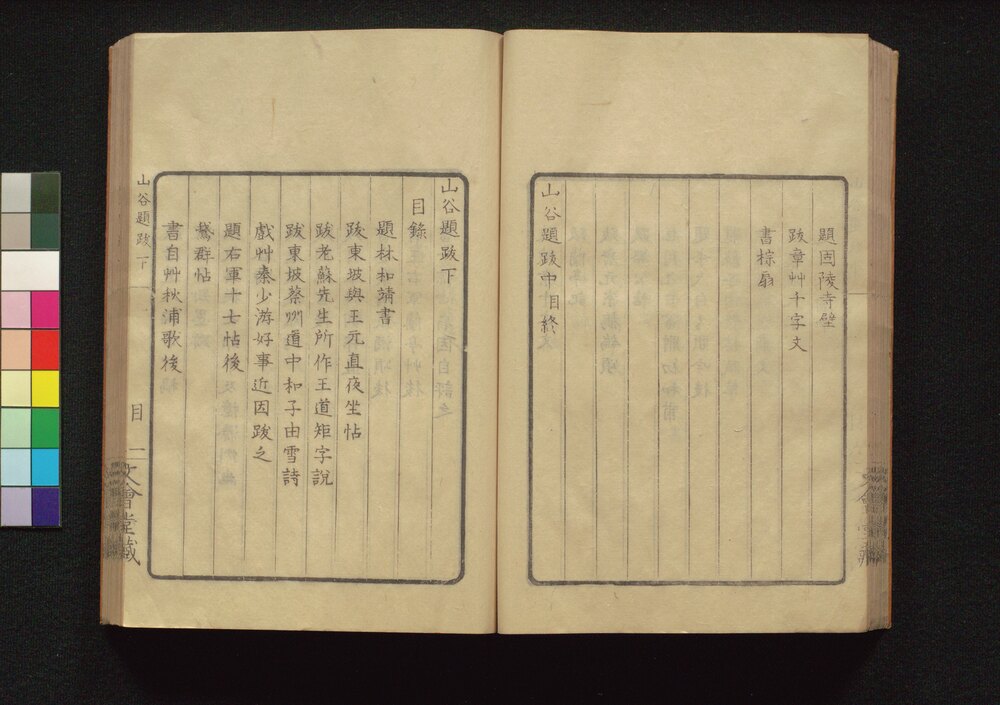 題固陵寺壁
跋章艸千字文
書棕扇
山谷題跋中目終
山谷題跋下
目錄
題林和靖書
跋東坡與王元直夜坐帖
跋老蘇先生所作王道矩字說
跋東坡蔡州道中和子由雪詩
戲艸秦少游好事近因跋之
題右軍十七帖後
鵞群帖
書自艸秋浦歌後
山谷題跋下
目 一
文會堂藏